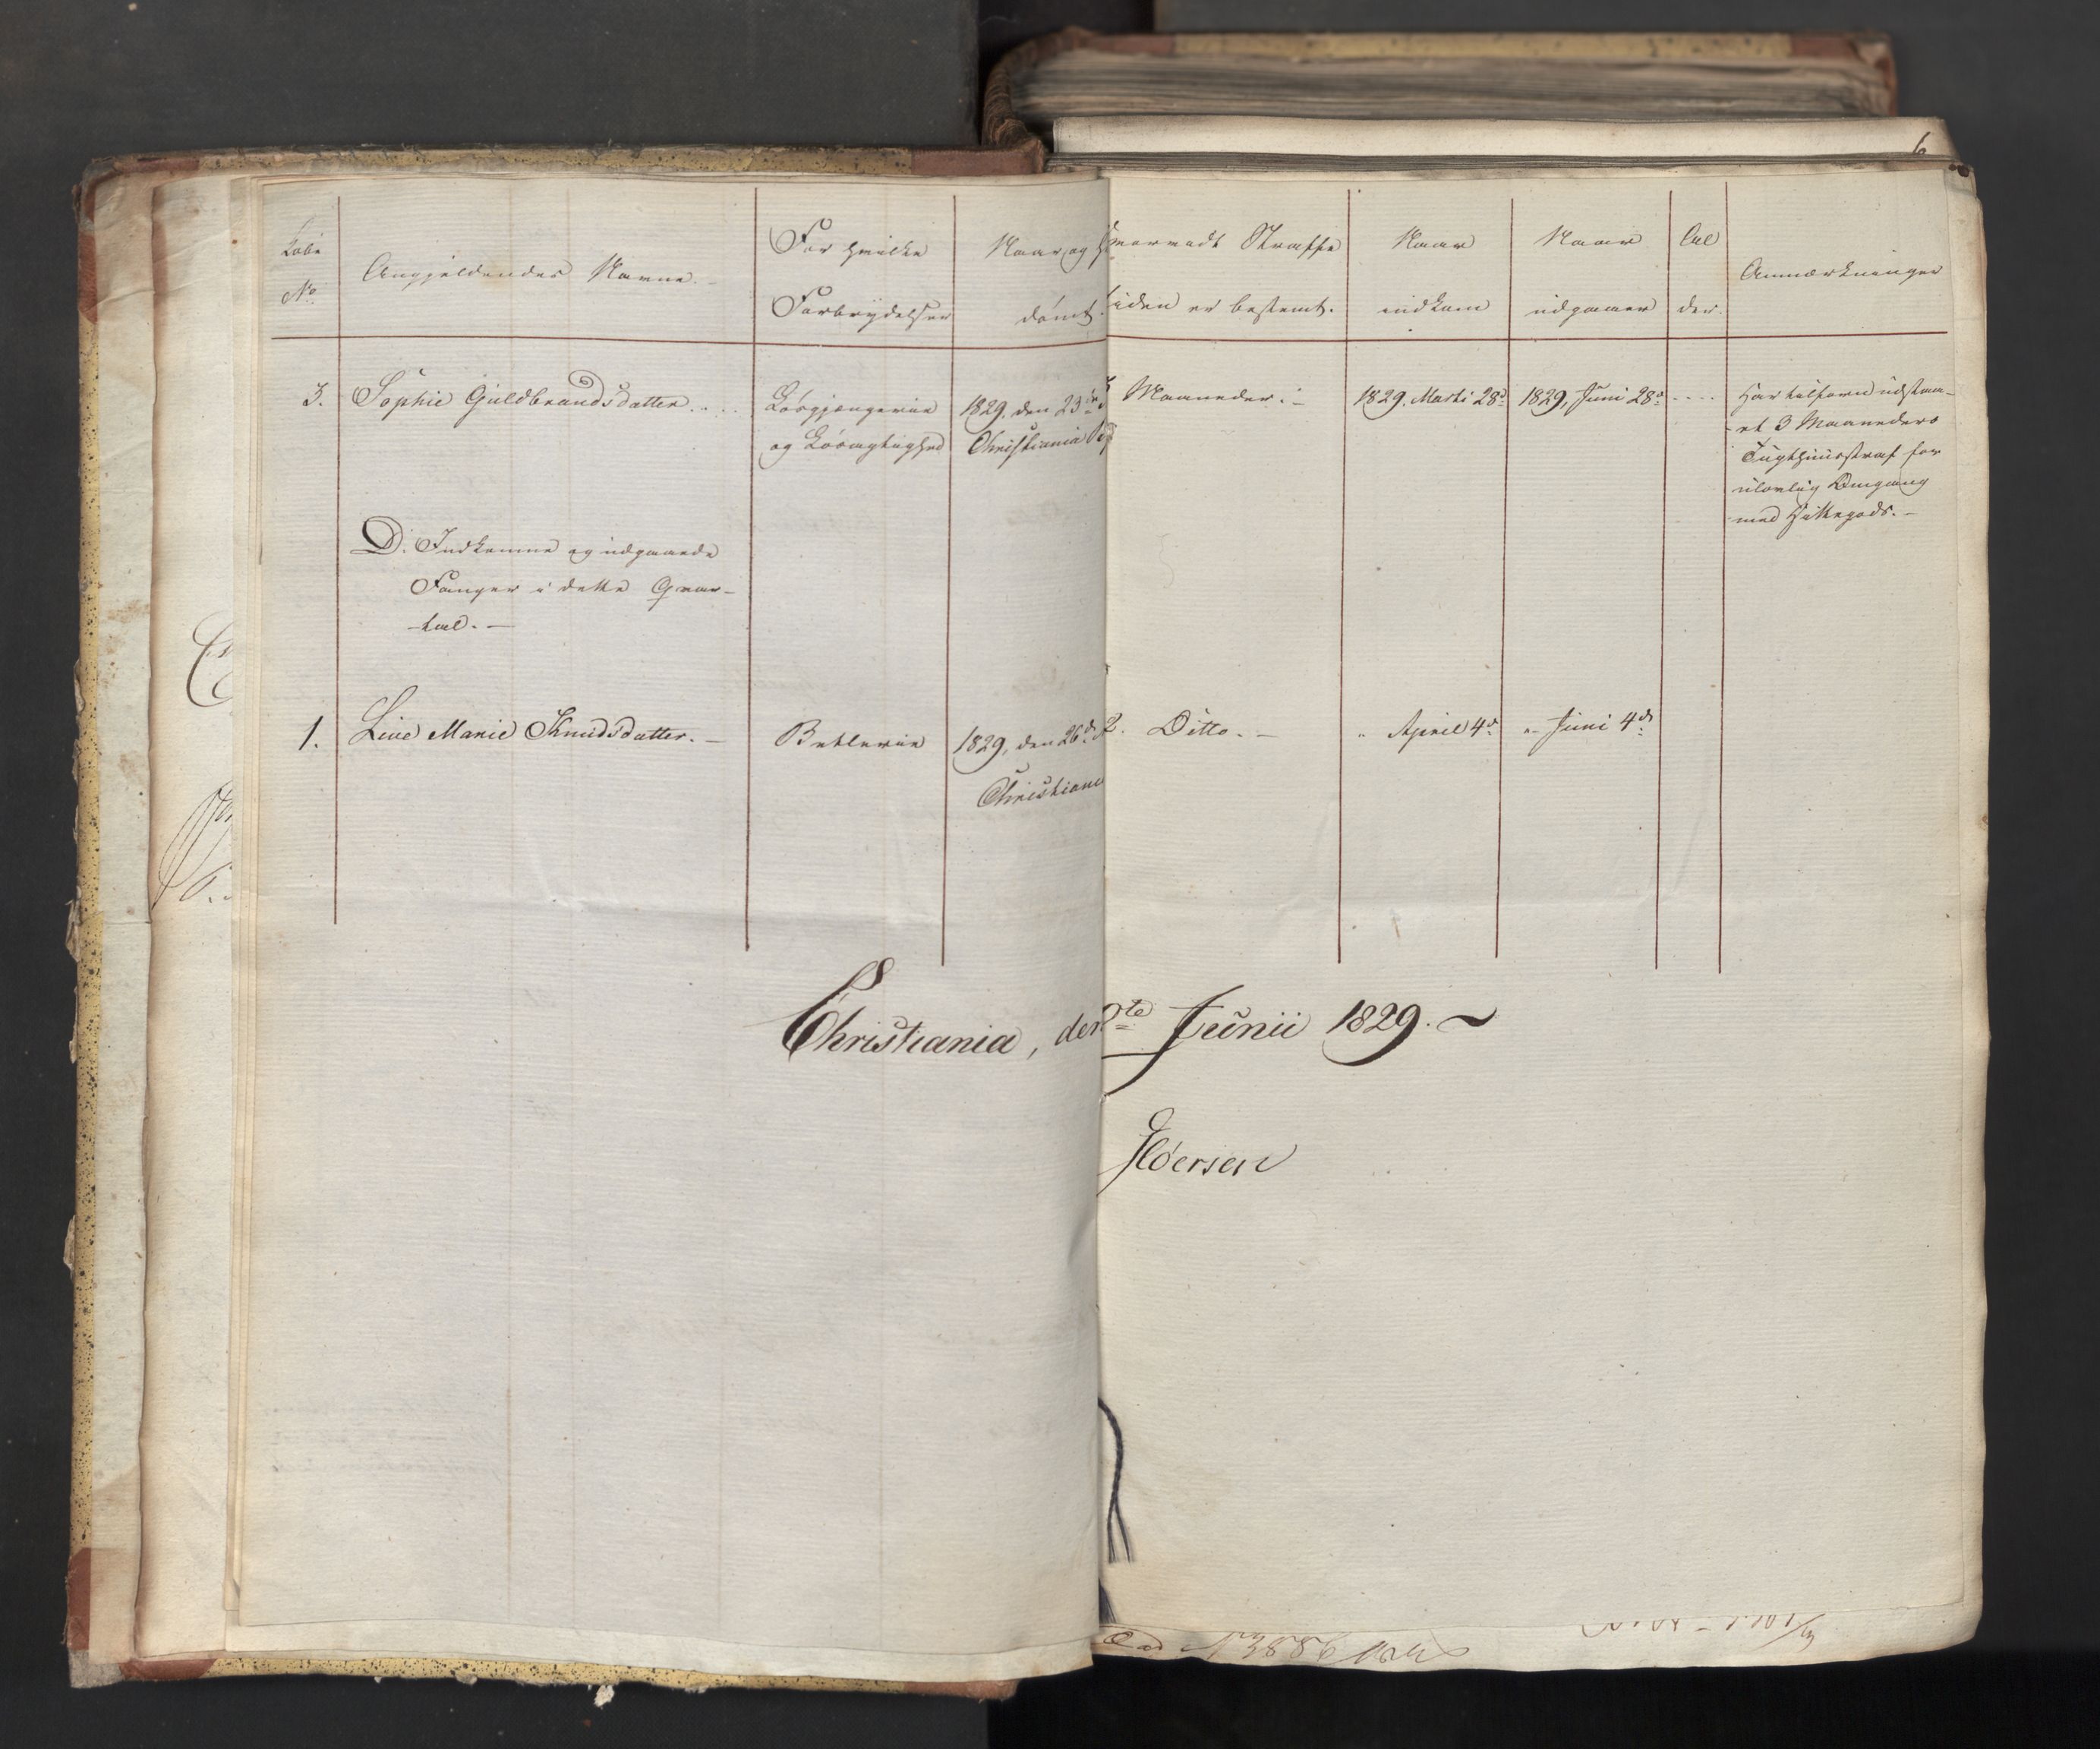 6
Løbe
No
Angjeldendes Navne.
For hvilke
Forbrydelser
Naar og
dömt.
hvormeget Straffe
tiden er bestemt.
Naar
indkom
Naar
udgaaer
Al
der.
Anmærkninger
3. Sophie Guldbrandsdatter.
Løsgjængerie
og Løsagtighed
1829. den 23de
Christiania
3 Maaneder. –
1829. Marti 28d
1829, Juni 28d
Har tilforn udstaa-
et 3 Maaneders
Tugthuusstraf for
ulovlig Omgang
med Hittegods. –
D. Indkomne og udgaaede
Fanger i dette Qvar-
tal. –
1. Live Marie Knudsdatter. –
Betlerie
1829, den 26de
Christiania
2. Ditto. –
" April 4d
" Juni 4d
Christiania, den
te Junii 1829. ~